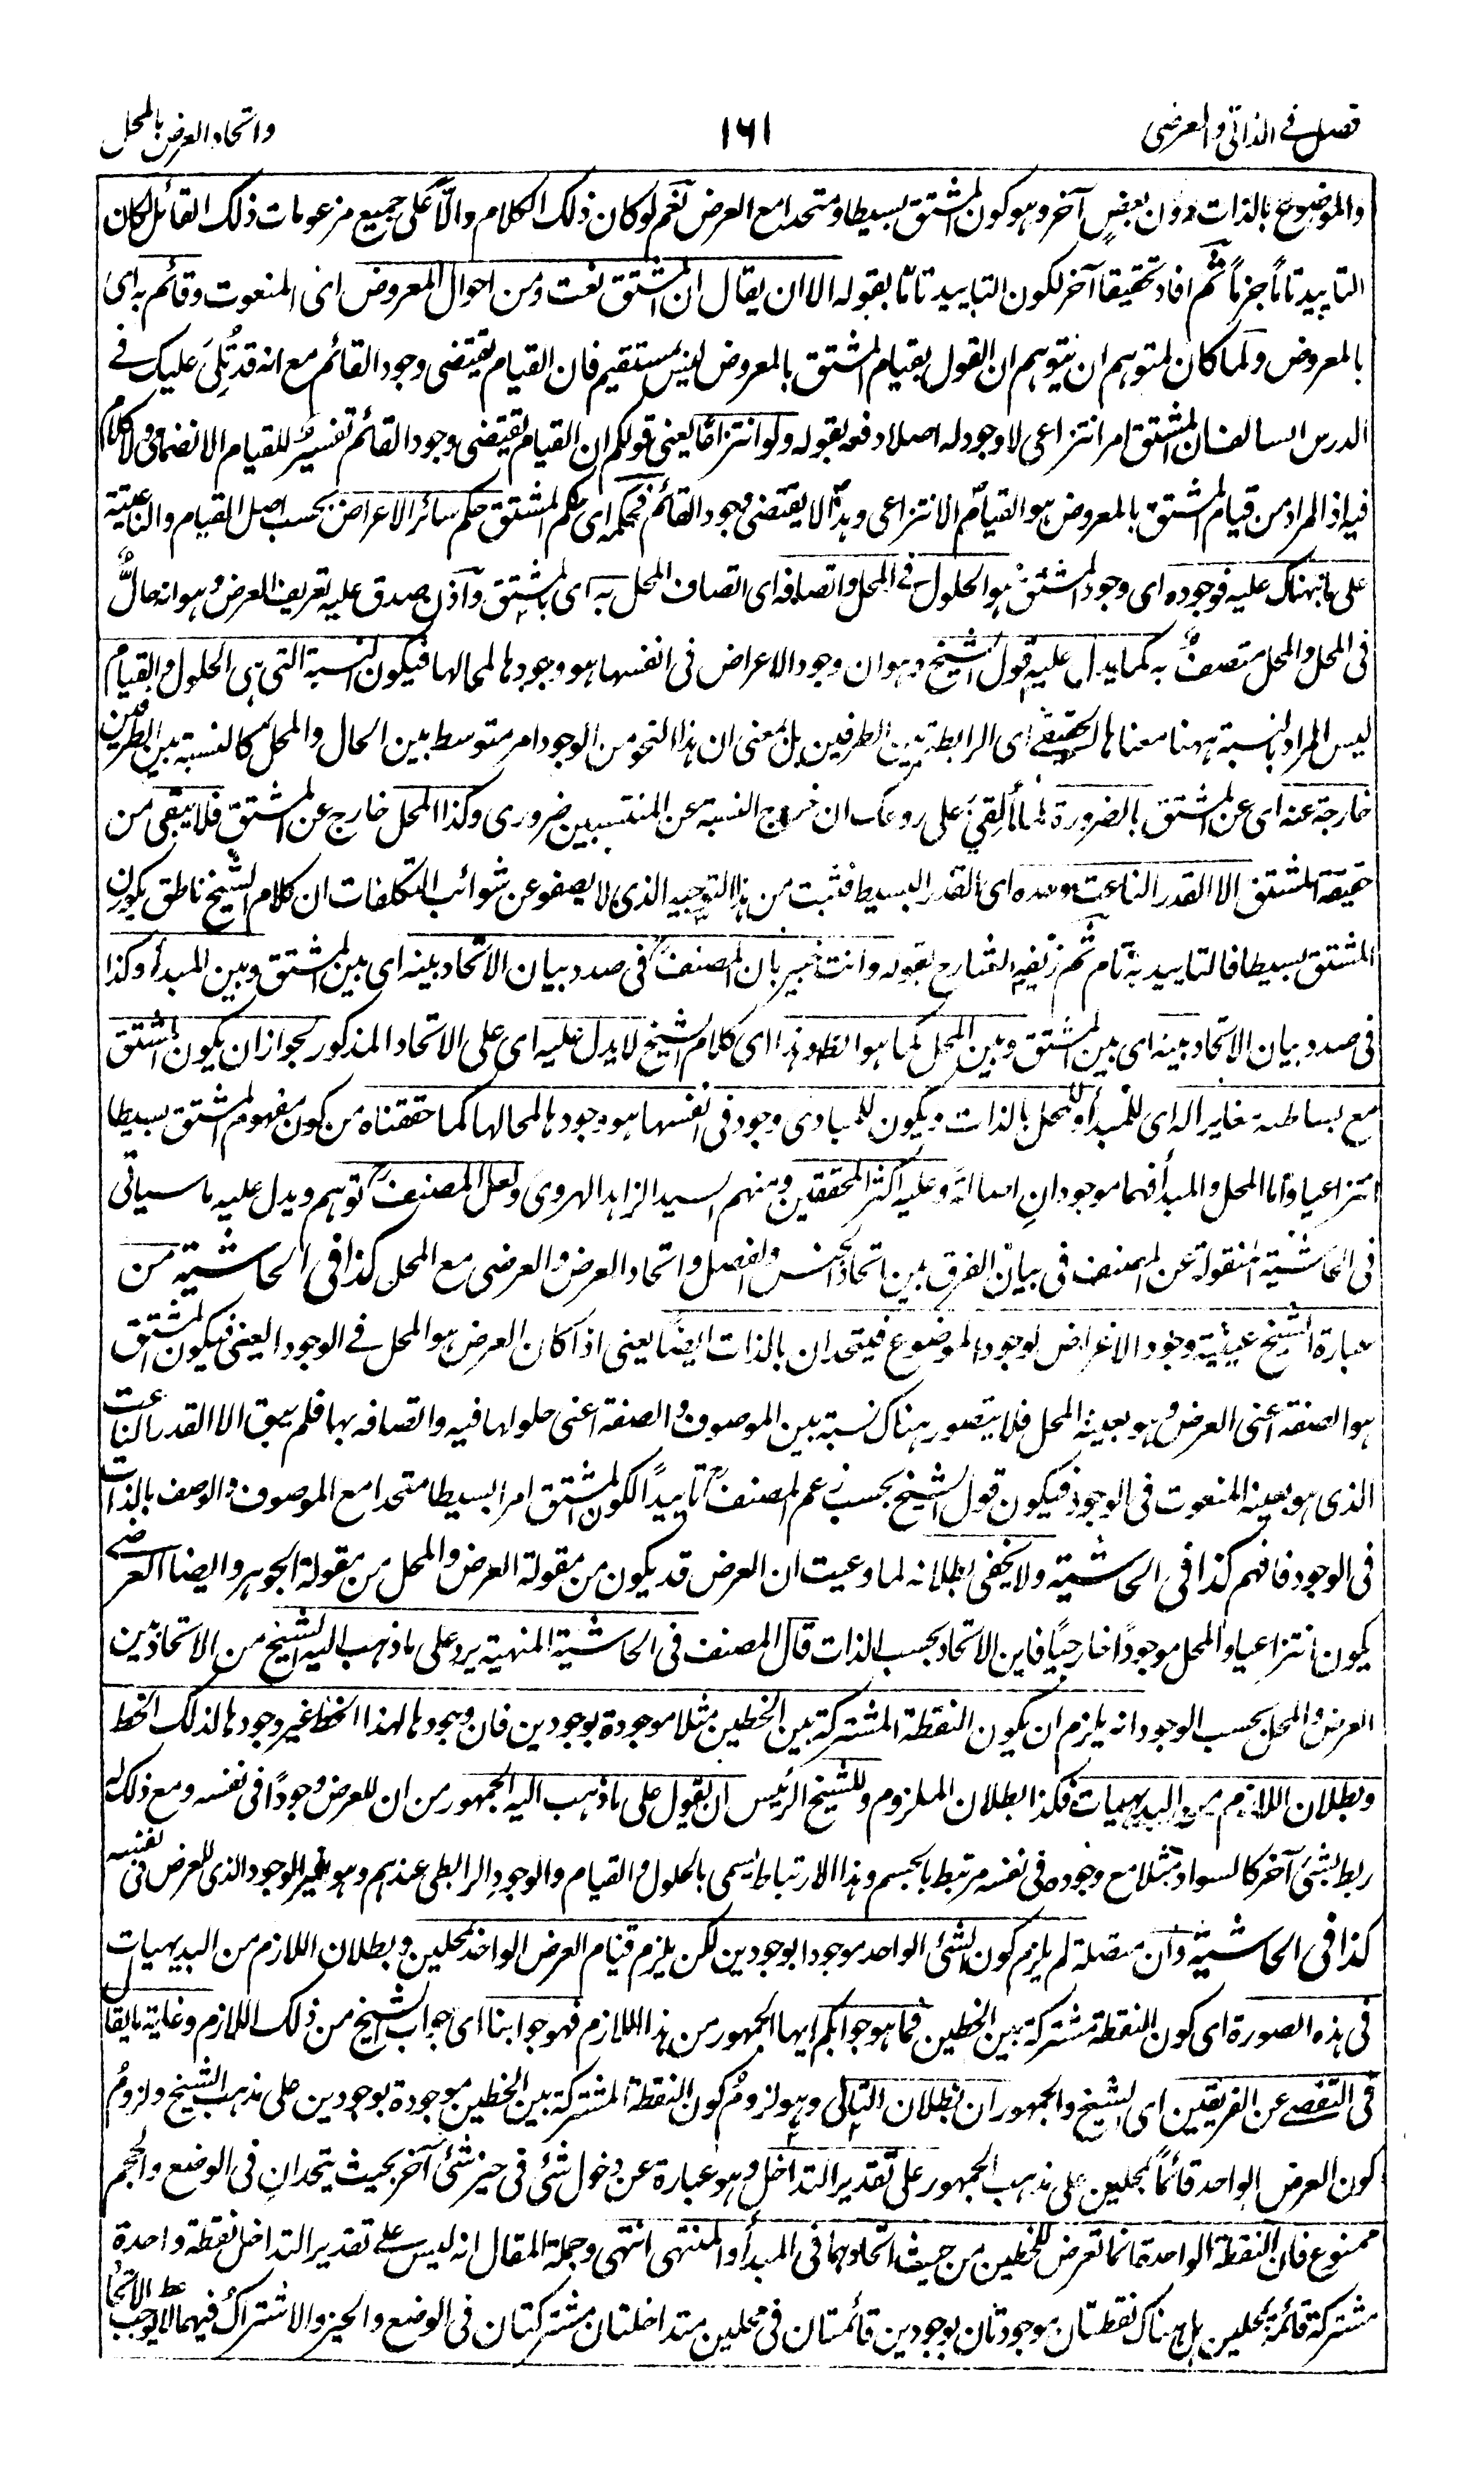 فصل فے الذاتی والعرضی
١٦١
واتحاد العرض بالمحل
والموضوع بالذات دون بعضٍ آخر وہو کون المشتق بسیطا ومتحدا مع العرض نعم لو کان ذلک الکلام والّاً علی جمیع مزعومات ذلک القائل لکان
التایید تامًا جزمًا ثم افاد تحقیقا آخر لکون التایید تامًا بقولہ الا ان یقال ان المشتق نعت ومن احوال المعروض ای المنعوت وقائم بہ ای
بالمعروض ولما کان لمتوہم ان یتوہم ان القول بقیام المشتق بالمعروض لیس بمستقیم فان القیام یقتضی وجود القائم مع انہ قد تُلِیَ علیک فے
الدرس السالف ان المشتق امر انتزاعی لا وجود لہ اصلا دفعہ بقولہ ولو انتزاعًا یعنی قولکم ان القیام یقتضی وجود القائم تفسیر للقیام الانضمامی ولا کلام
فیہ اذ المراد من قیام المشتق بالمعروض ہو القیام الانتزاعی وہذا لا یقتضی وجود القائم فحکمہ ای حکم المشتق حکم سائر الاعراض بحسب اصل القیام والناعتیة
علی ما نبہناک علیہ فوجودہ ای وجود المشتق ہو الحلول فے المحل واتصافہ ای اتصاف المحل بہ ای بالمشتق واذن صدق علیہ تعریف العرض وہو انہ حالٌّ
فی المحل والمحل متصفٌ بہ کما یدل علیہ قول الشیخ وہو ان وجود الاعراض فی انفسہا ہو وجودہا لمحالہا فیکون النسبة التی ہی الحلول والقیام
لیس المراد بالنسبة ہہنا معناہا الحقیقے ای الرابطة بین الطرفین بل معنی ان ہذا النحو من الوجود امر متوسط بین الحال والمحل کالنسبة بین الطرفین
خارجة عنہ ای عن المشتق بالضرورة لما اُلقِیَ علی روعک ان خروج النسبة عن المنتسبین ضروری وکذا المحل خارج عن المشتق فلا یبقی من
حقیقة المشتق الا القدر الناعت وحدہ ای القدر البسیط فثبت من ہذا التوجیہ الذی لا یصفو عن شوائب التکلفات ان کلام الشیخ ناطق بکون
المشتق بسیطا فالتایید بہ تام ثم زیفہ الشارح بقولہ وانت خبیر بان المصنف فی صدد بیان الاتحاد بینہ ای بین المشتق وبین المبدأ وکذا
فی صدد بیان الاتحاد بینہ ای بین المشتق وبین المحل کما ہو الظ وہذا ای کلام الشیخ لا یدل علیہ ای علی الاتحاد المذکور لجواز ان یکون المشتق
مع بساطتہ مغایرا لہ ای للمبدأ وللمحل بالذات ویکون للمبادی وجود فی انفسہا ہو وجودہا لمحالہا کما حققناہ من کون مفہوم المشتق بسیطا
انتزاعیا واما المحل والمبدأ فہما موجودان اصالة وعلیہ اکثر المحققین ومنہم السید الزاہد الہروی ولعل المصنف توہم ویدل علیہ ما سیاتی
فی الحاشیة المنقولة عن المصنف فی بیان الفرق بین اتحاد الجنس والفصل واتحاد العرض والعرضی مع المحل کذا فی الحاشیة من
عبارة الشیخ عینیة وجود الاعراض لوجود الموضوع فیتحدان بالذات ایضا یعنی اذا کان العرض ہو المحل فے الوجود العینی فیکون المشتق
ہو الصفة اعنی العرض وہو بعینہ المحل فلا یتصور ہناک نسبة بین الموصوف والصفة اعنی حلولہا فیہ واتصافہ بہا فلم یبق الا القدر الناعت
الذی ہو بعینہ المنعوت فی الوجود فیکون قول الشیخ بحسب زعم المصنف تاییدًا لکون المشتق امرا بسیطا متحدا مع الموصوف والوصف بالذات
فی الوجود فافہم کذا فی الحاشیة ولا یخفی بطلانہ لما وعیت ان العرض قد یکون من مقولة العرض والمحل من مقولة الجوہر وایضا العرضی
یکون انتزاعیا والمحل موجودًا خارجیًا فاین الاتحاد بحسب الذات قال المصنف فی الحاشیة المنہیة یرد علی ما ذہب الیہ الشیخ من الاتحاد بین
العرض والمحل بحسب الوجود انہ یلزم ان یکون النقطة المشترکة بین الخطین مثلا موجودة بوجودین فان وجودہا لہذا الخط غیر وجودہا لذلک الخط
وبطلان اللازم من البدیہیات فکذا بطلان الملزوم وللشیخ الرئیس ان یقول علی ما ذہب الیہ الجمہور من ان للعرض وجودًا فی نفسہ ومع ذلک لہ
ربط بشئ آخر کالسواد مثلا مع وجودہ فی نفسہ مرتبط بالجسم وہذا الارتباط یسمی بالحلول والقیام والوجود الرابطی عندہم وہو غیر الوجود الذی للعرض فی نفسہ
کذا فی الحاشیة وان منصلة لم یلزم کون الشئ الواحد موجودا بوجودین لکن یلزم قیام العرض الواحد بمحلین وبطلان اللازم من البدیہیات
فی ہذہ الصورة ای کون النقطة مشترکة بین الخطین فما ہو جوابکم ایہا الجمہور من ہذا اللازم فہو جوابنا ای جواب الشیخ من ذلک اللازم وغایة ما یقال
فی التفصے عن الفریقین ای الشیخ والجمہور ان بطلان التالی وہو لزوم کون النقطة المشترکة بین الخطین موجودة بوجودین علی مذہب الشیخ ولزومُ
کون العرض الواحد قائمًا بمحلین علی مذہب الجمہور علی تقدیر التداخل وہو عبارة عن دخول شئ فی حیز شئ آخر بحیث یتحدان فی الوضع والحجم
ممنوع فان النقطة الواحدة انما تعرض للخطین من حیث اتحادہما فی المبدأ والمنتہی انتہی وجملة المقال انہ لیس علے تقدیر التداخل نقطة واحدة
مشترکة قائمة بمحلین بل ہناک نقطتان موجودتان بوجودین قائمتان فی محلین متداخلتان مشترکتان فی الوضع والحیز والاشتراک فیہما لا یوجب الاتحاد